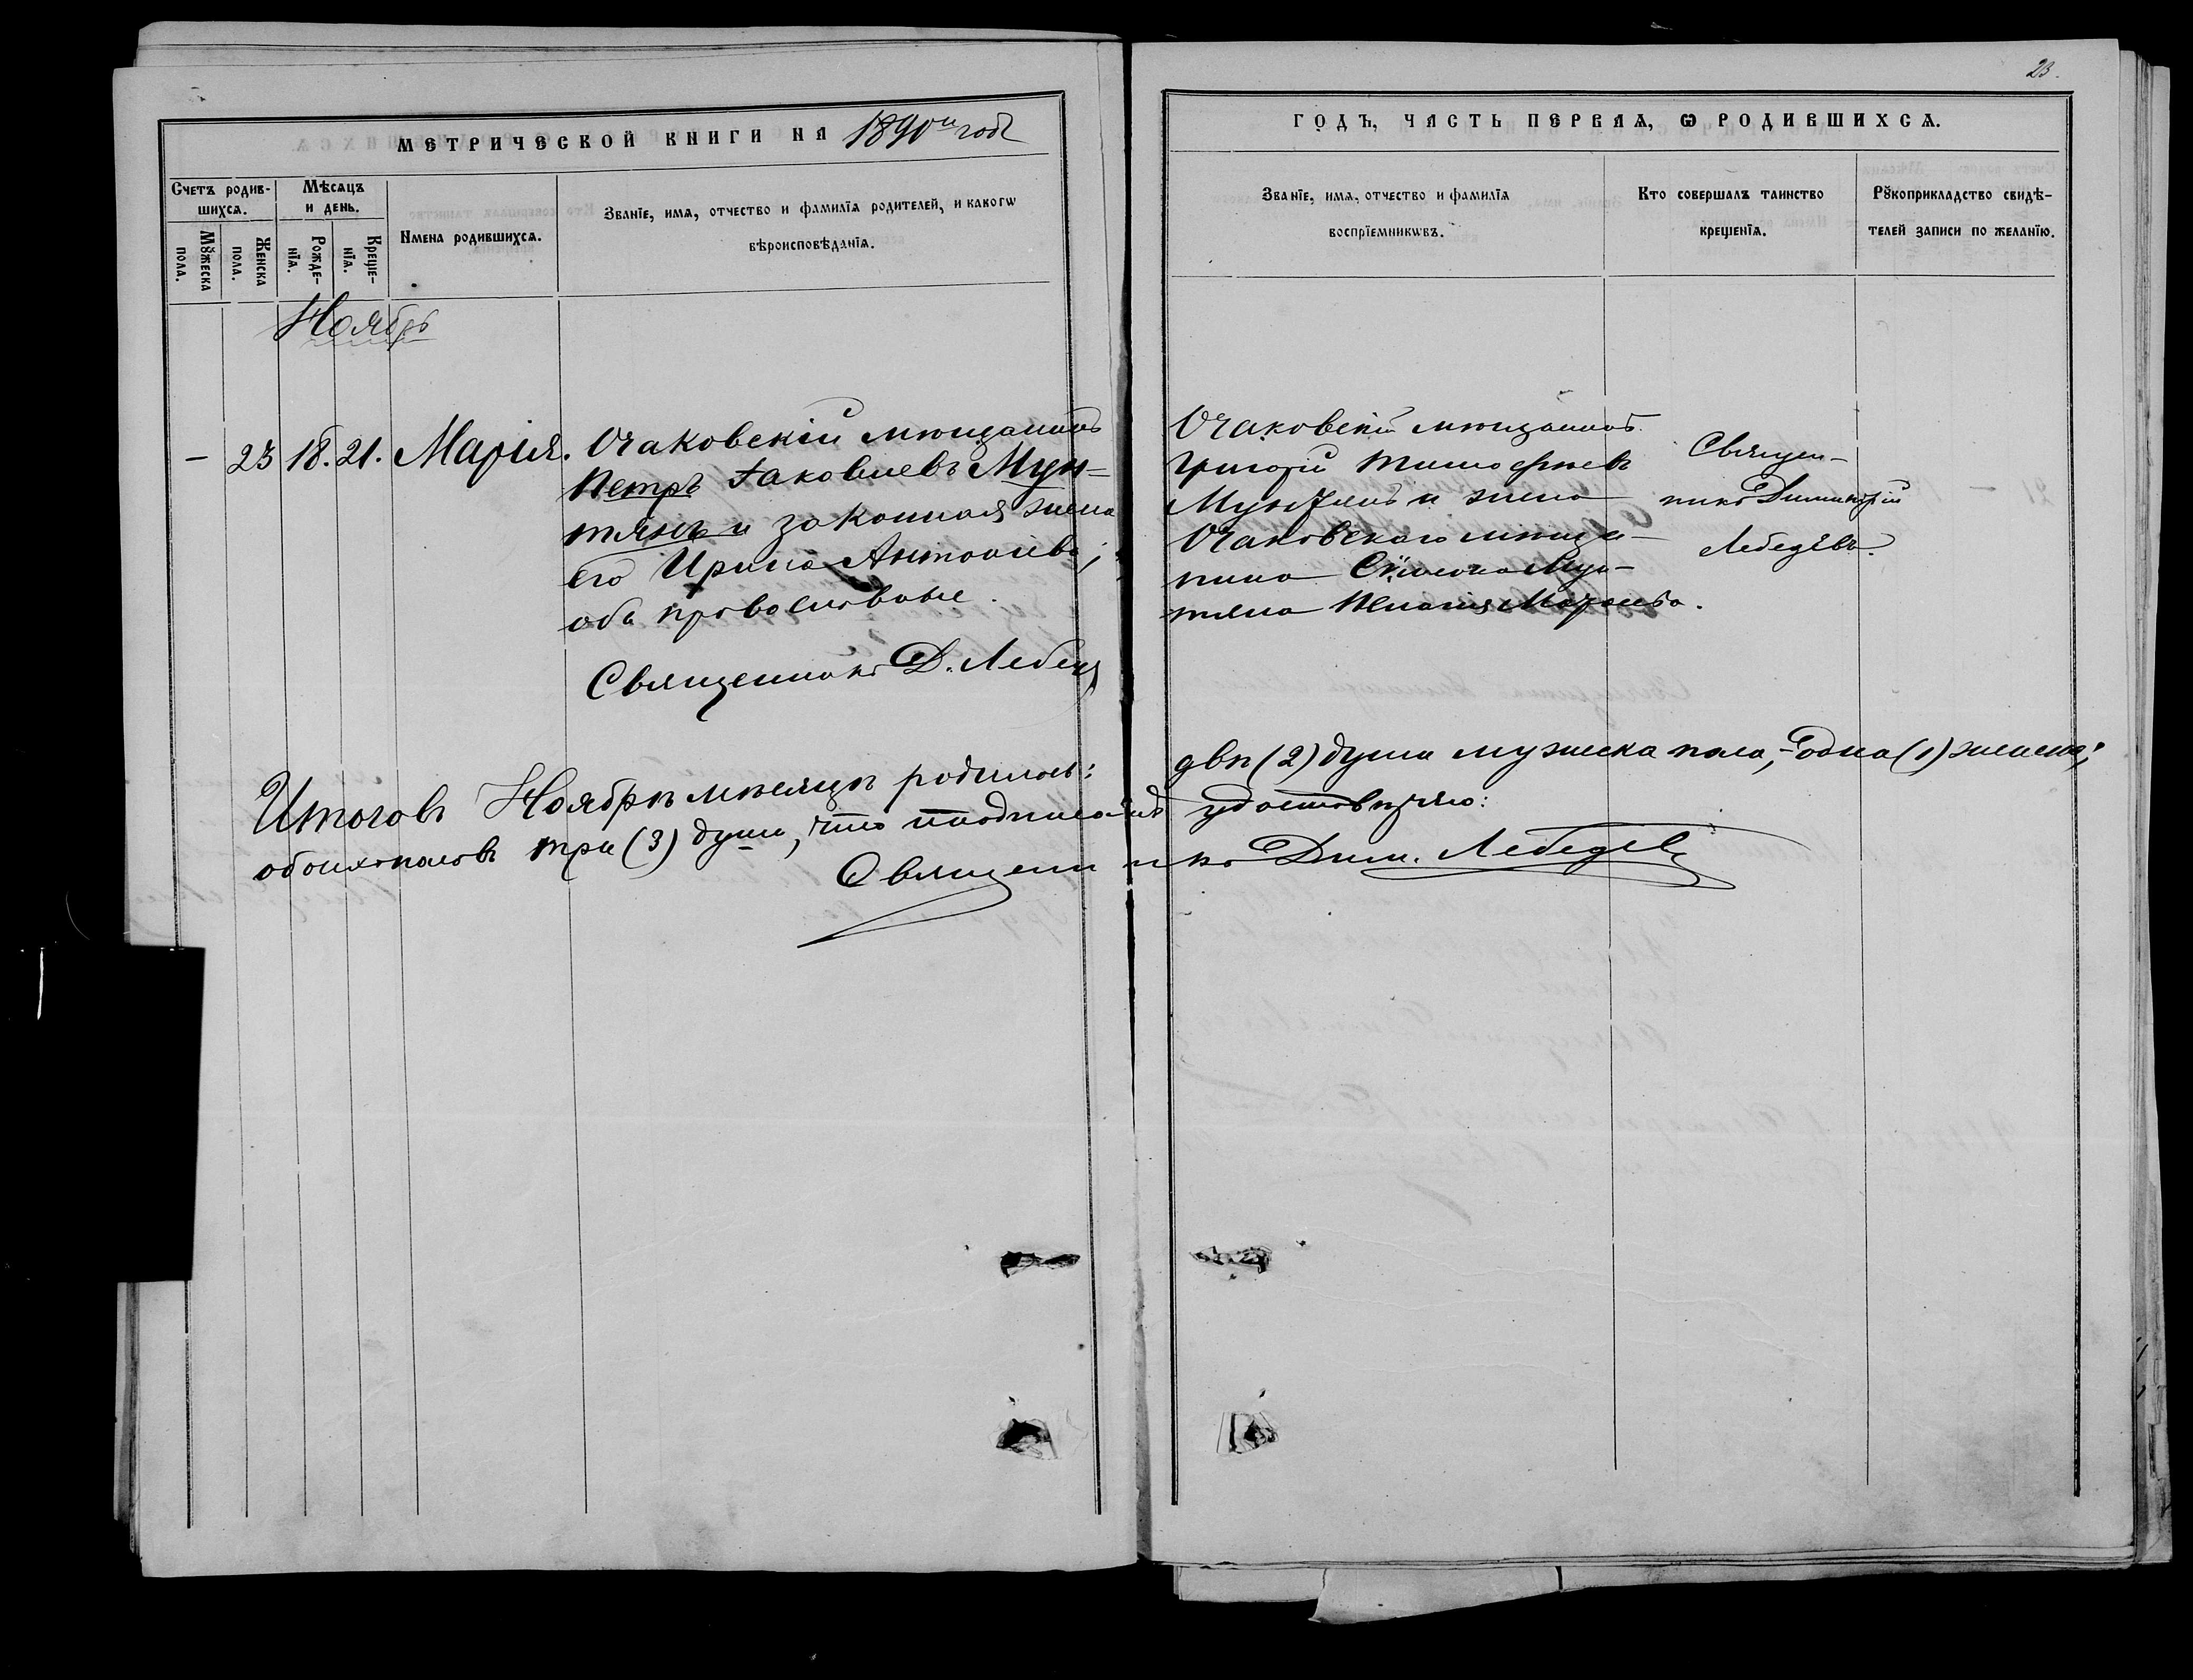 23.
МЕТРИЧЕСКОЙ КНИГИ НА 1890й годъ
ГОДЪ, ЧАСТЬ ПЕРВАЯ, Ѡ РОДИВШИХСѦ.
Счетъ родив-
шихсѧ.
Мѣсѧцъ
и день.
Мꙋжеска
пола.
Женска
пола.
Рожде-
нїѧ.
Креще-
нїѧ.
Имена родившихсѧ.
Званїе, имѧ, отчество и фамилїѧ родителей, и какогѡ
вѣроисповѣданїѧ.
Званїе, имѧ, отчество и фамилїѧ
воспрїемникѡвъ.
Кто совершалъ таинство
крещенїѧ.
Рꙋкоприкладство свидѣ-
телей записи по желанїю.
Ноябрь
– 23 18. 21. Марія.
Очаковскій мѣщанинъ
Петръ Іаковлевъ Мун-
тянъ и законная жена
его Ирина Антоніева;
оба православные.
Священникъ Д. Лебедев
Очаковскій мѣщанинъ
Григорій Тимофѣевъ
Мунтянъ и жена
Очаковскаго мѣща-
нина Симеона Мун-
тяна Пелагія
Священ-
никъ Димитрій
Лебедевъ.
Итогов Ноябрѣ мѣсяцѣ родилось: двѣ (2) души мужеска пола, – одна (1) женска,
обоихъ половъ три (3) души, что подписомъ удостовѣряю:
Священникъ Дим. Лебедев